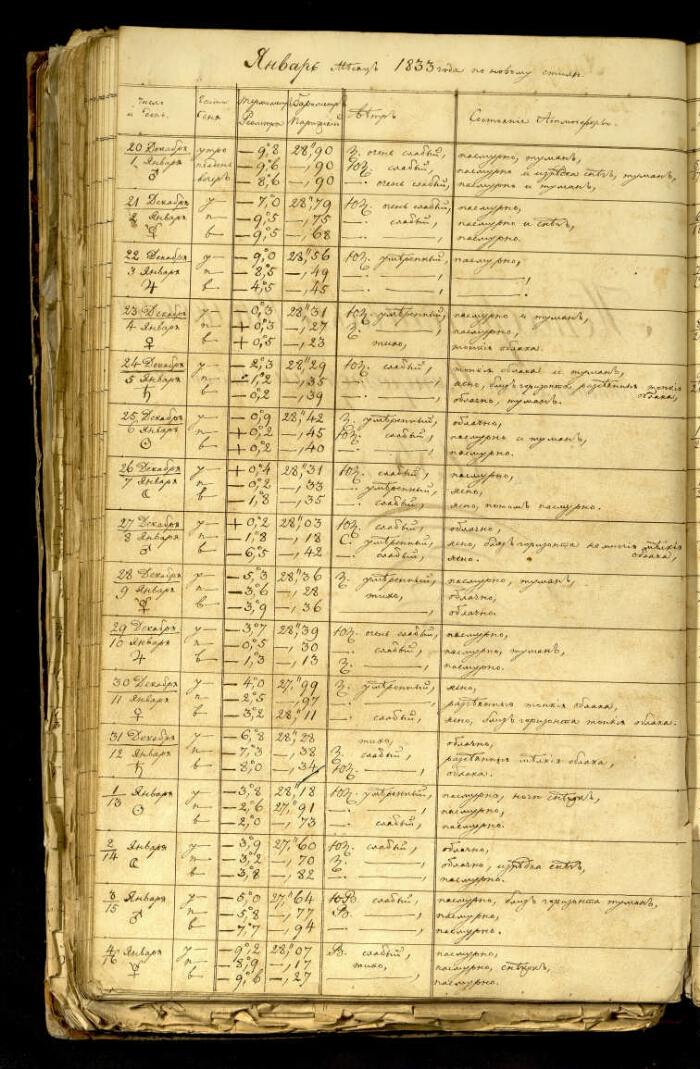 Январь Мѣсяцъ 1833 года по новому стилю.
Число и день. Части дня Термометръ Реомюра Барометръ Парижскій Вѣтръ Состояніе Атмосферы.
20 Декабря утро —9,°8 28,"90 З. очень слабый, пасмурно, туманъ,
1 Января полдень —9,°6 —,90 ЮЗ. слабый, пасмурно и изрѣдка снѣгъ, туманъ,
♂ вечеръ —8,°6 —,90 —. очень слабый, пасмурно и туманъ,
21 Декабря у— —7,°0 28,"79 ЮЗ. очень слабый, пасмурно,
2 Января п— —9,°5 —,75 —. слабый, пасмурно и снѣгъ,
☿ в— —9,°5 —,68 —. ———, пасмурно.
22 Декабря у— —9,°0 28,"56 ЮЗ. умѣренный, пасмурно,
3 Января п— —8,°5 —,49 —. ———, ———,
♃ в— —4,°5 —,45 —. ———, ———.
23 Декабря у— —0,°3 28,"31 ЮЗ. умѣренный, пасмурно и туманъ,
4 Января п— +0,°3 —,27 З. ———, пасмурно,
♀ в— +0,°5 —,23 тихо, тонкія облака.
24 Декабря у— —2,°3 28,"29 ЮЗ. слабый, тонкія облака и туманъ,
5 Января п— —1,°2 —,35 —. ———, ясно, близъ горизонта разсѣянныя тонкія облака,
♄ в— —0,°2 —,39 —. ———, облачно, туманъ.
25 Декабря у— —0,°9 28,"42 З. умѣренный, облачно,
6 Января п— +0,°2 —,45 ЮЗ. слабый, пасмурно и туманъ,
☉ в— +0,°2 —,40 —. ———, пасмурно.
26 Декабря у— +0,°4 28,"31 ЮЗ. слабый, пасмурно,
7 Января п— —0,°2 —,33 —. умѣренный, ясно,
☾ в— —1,°8 —,35 —. слабый, ясно, потомъ пасмурно.
27 Декабря у— +0,°2 28,"03 ЮЗ. слабый, облачно,
8 Января п— —1,°8 —,18 С. умѣренный, ясно, близъ горизонта немногія мѣлкія облака,
♂ в— —6,°5 —,42 —. слабый, ясно.
28 Декабря у— —5,°3 28,"36 З. умѣренный, пасмурно, туманъ,
9 Января п— —3,°6 —,28 тихо, облачно,
☿ в— —3,°9 —,36 —. ———, облачно.
29 Декабря у— —3,°7 28,"39 ЮЗ. очень слабый, пасмурно,
10 Января п— —0,°5 —,30 —. слабый, пасмурно, туманъ,
♃ в— —1,°3 —,13 З. ———, пасмурно.
30 Декабря у— —4,°0 27,"99 З. умѣренный, ясно,
11 Января п— —2,°5 —,97 —. ———, разсѣянныя тонкія облака,
♀ в— —3,°2 28,"11 —. слабый, ясно, близъ горизонта тонкія облака.
31 Декабря у— —6,°8 28,"28 тихо, облачно,
12 Января п— —7,°3 —,38 З. слабый, разсѣянныя мѣлкія облака,
♄ в— —8,°0 —,34 ЮЗ. ———, облака.
1/13 Января у— —3,°8 28,"18 ЮЗ. умѣренный, пасмурно,
☉ п— —2,°6 27,"91 —. ———, пасмурно,
в— —2,°0 —,73 —. слабый, пасмурно.
2/14 Января у— —3,°9 27,"60 ЮЗ. слабый, облачно,
☾ п— —3,°2 —,70 З. ———, облачно, изрѣдка снѣгъ,
в— —3,°8 —,82 —. ———, пасмурно.
3/15 Января у— —5,°0 27,"64 ЮВ. слабый, пасмурно, близъ горизонта туманъ,
♂ п— —5,°8 —,77 В. ———, пасмурно,
в— —7,°7 —,94 —. ———, пасмурно.
4/16 Января у— —9,°2 28,"07 В. слабый, пасмурно,
☿ п— —8,°9 —,17 тихо, пасмурно, снѣжокъ,
в— —9,°6 —,27 —. ———, пасмурно.